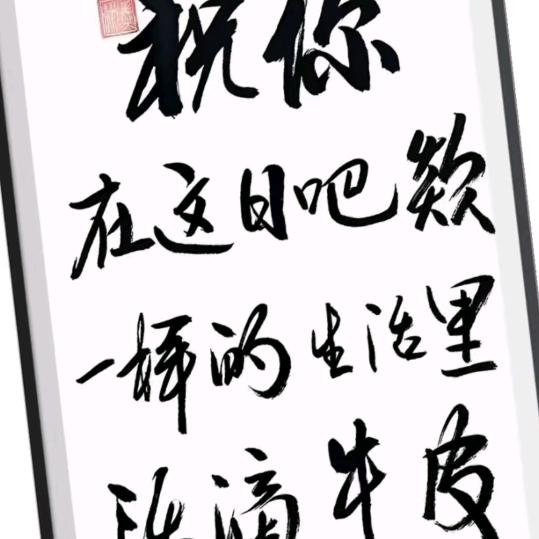 祝你
在这日吧欻
一样的生活里
活滴牛皮